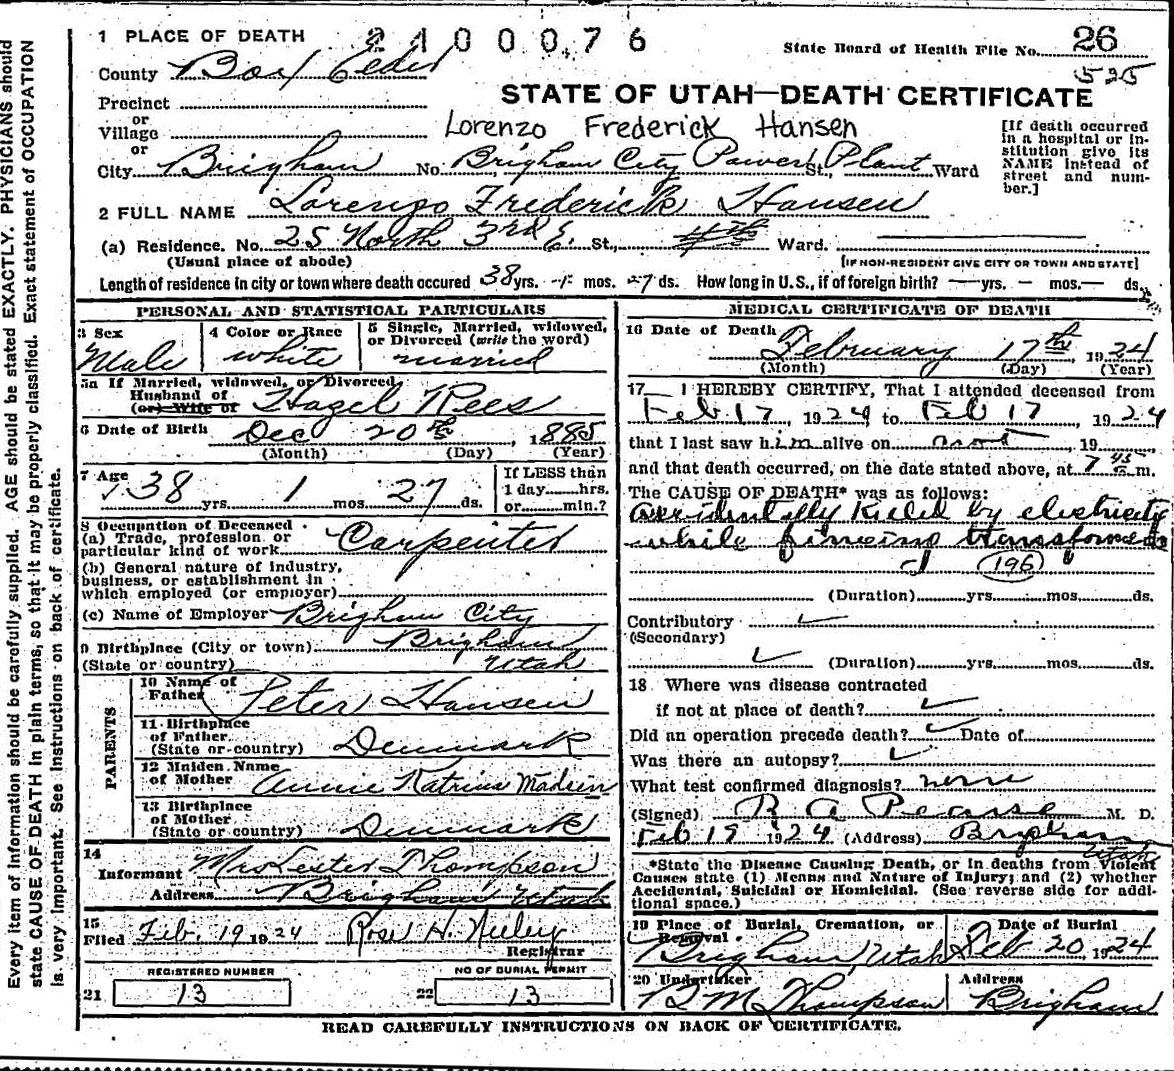 1 PLACE OF DEATH 2400076 State Board of Health File No. 26
County Box Elder 525
STATE OF UTAH—DEATH CERTIFICATE
Precinct
or
Village
or
Lorenzo Frederick Hansen
[If death occurred in a hospital or institution give its NAME instead of street and number.]
City Brigham No. Brigham City Power St., Plant Ward
2 FULL NAME Lorenzo Frederick Hansen
(a) Residence. No. 25 North 3rd E. St., 4th Ward.
(Usual place of abode) [IF NON-RESIDENT GIVE CITY OR TOWN AND STATE]
Length of residence in city or town where death occured 38 yrs. 1 mos. 27 ds. How long in U.S., if of foreign birth? — yrs. — mos. — ds.
PERSONAL AND STATISTICAL PARTICULARS
3 Sex
Male
4 Color or Race
white
5 Single, Married, widowed, or Divorced (write the word)
married
5a If Married, widowed, or Divorced
Husband of
(or) Wife of Hazel Rees
6 Date of Birth Dec 20th, 1885
(Month) (Day) (Year)
7 Age 38 yrs. 1 mos. 27 ds.
If LESS than
1 day......hrs.
or......min.?
8 Occupation of Deceased
(a) Trade, profession or
particular kind of work Carpenter
(b) General nature of industry,
business, or establishment in
which employed (or employer)
(c) Name of Employer Brigham City
9 Birthplace (City or town) Brigham
(State or country) Utah
PARENTS
10 Name of
Father Peter Hansen
11 Birthplace
of Father
(State or country) Denmark
12 Maiden Name
of Mother Annie Katrina Madsen
13 Birthplace
of Mother
(State or country) Denmark
14
Informant Mrs Lester Thompson
Address Brigham Utah
15
Filed Feb. 19 1924 Rose H. Neeley
Registrar
REGISTERED NUMBER
21 13
NO OF BURIAL PERMIT
22 13
MEDICAL CERTIFICATE OF DEATH
16 Date of Death February 17th, 1924
(Month) (Day) (Year)
17 I HEREBY CERTIFY, That I attended deceased from
Feb 17 1924 to Feb 17 1924
that I last saw him alive on not 19
and that death occurred, on the date stated above, at 7 45 m.
The CAUSE OF DEATH* was as follows:
accidentally killed by electricity
while transformer
196
(Duration) yrs. mos. ds.
Contributory
(Secondary)
(Duration) yrs. mos. ds.
18 Where was disease contracted
if not at place of death?
Did an operation precede death? Date of
Was there an autopsy?
What test confirmed diagnosis? none
(Signed) R A Pearse M. D.
Feb 19 1924 (Address) Brigham Utah
*State the Disease Causing Death, or in deaths from Violent
Causes state (1) Means and Nature of Injury; and (2) whether
Accidental, Suicidal or Homicidal. (See reverse side for additional space.)
19 Place of Burial, Cremation, or Removal.
Brigham, Utah
Date of Burial
Feb 20, 1924
20 Undertaker
R M Thompson
Address
Brigham
READ CAREFULLY INSTRUCTIONS ON BACK OF CERTIFICATE.
Every item of information should be carefully supplied. AGE should be stated EXACTLY. PHYSICIANS should
state CAUSE OF DEATH in plain terms, so that it may be properly classified. Exact statement of OCCUPATION
is very important. See instructions on back of certificate.